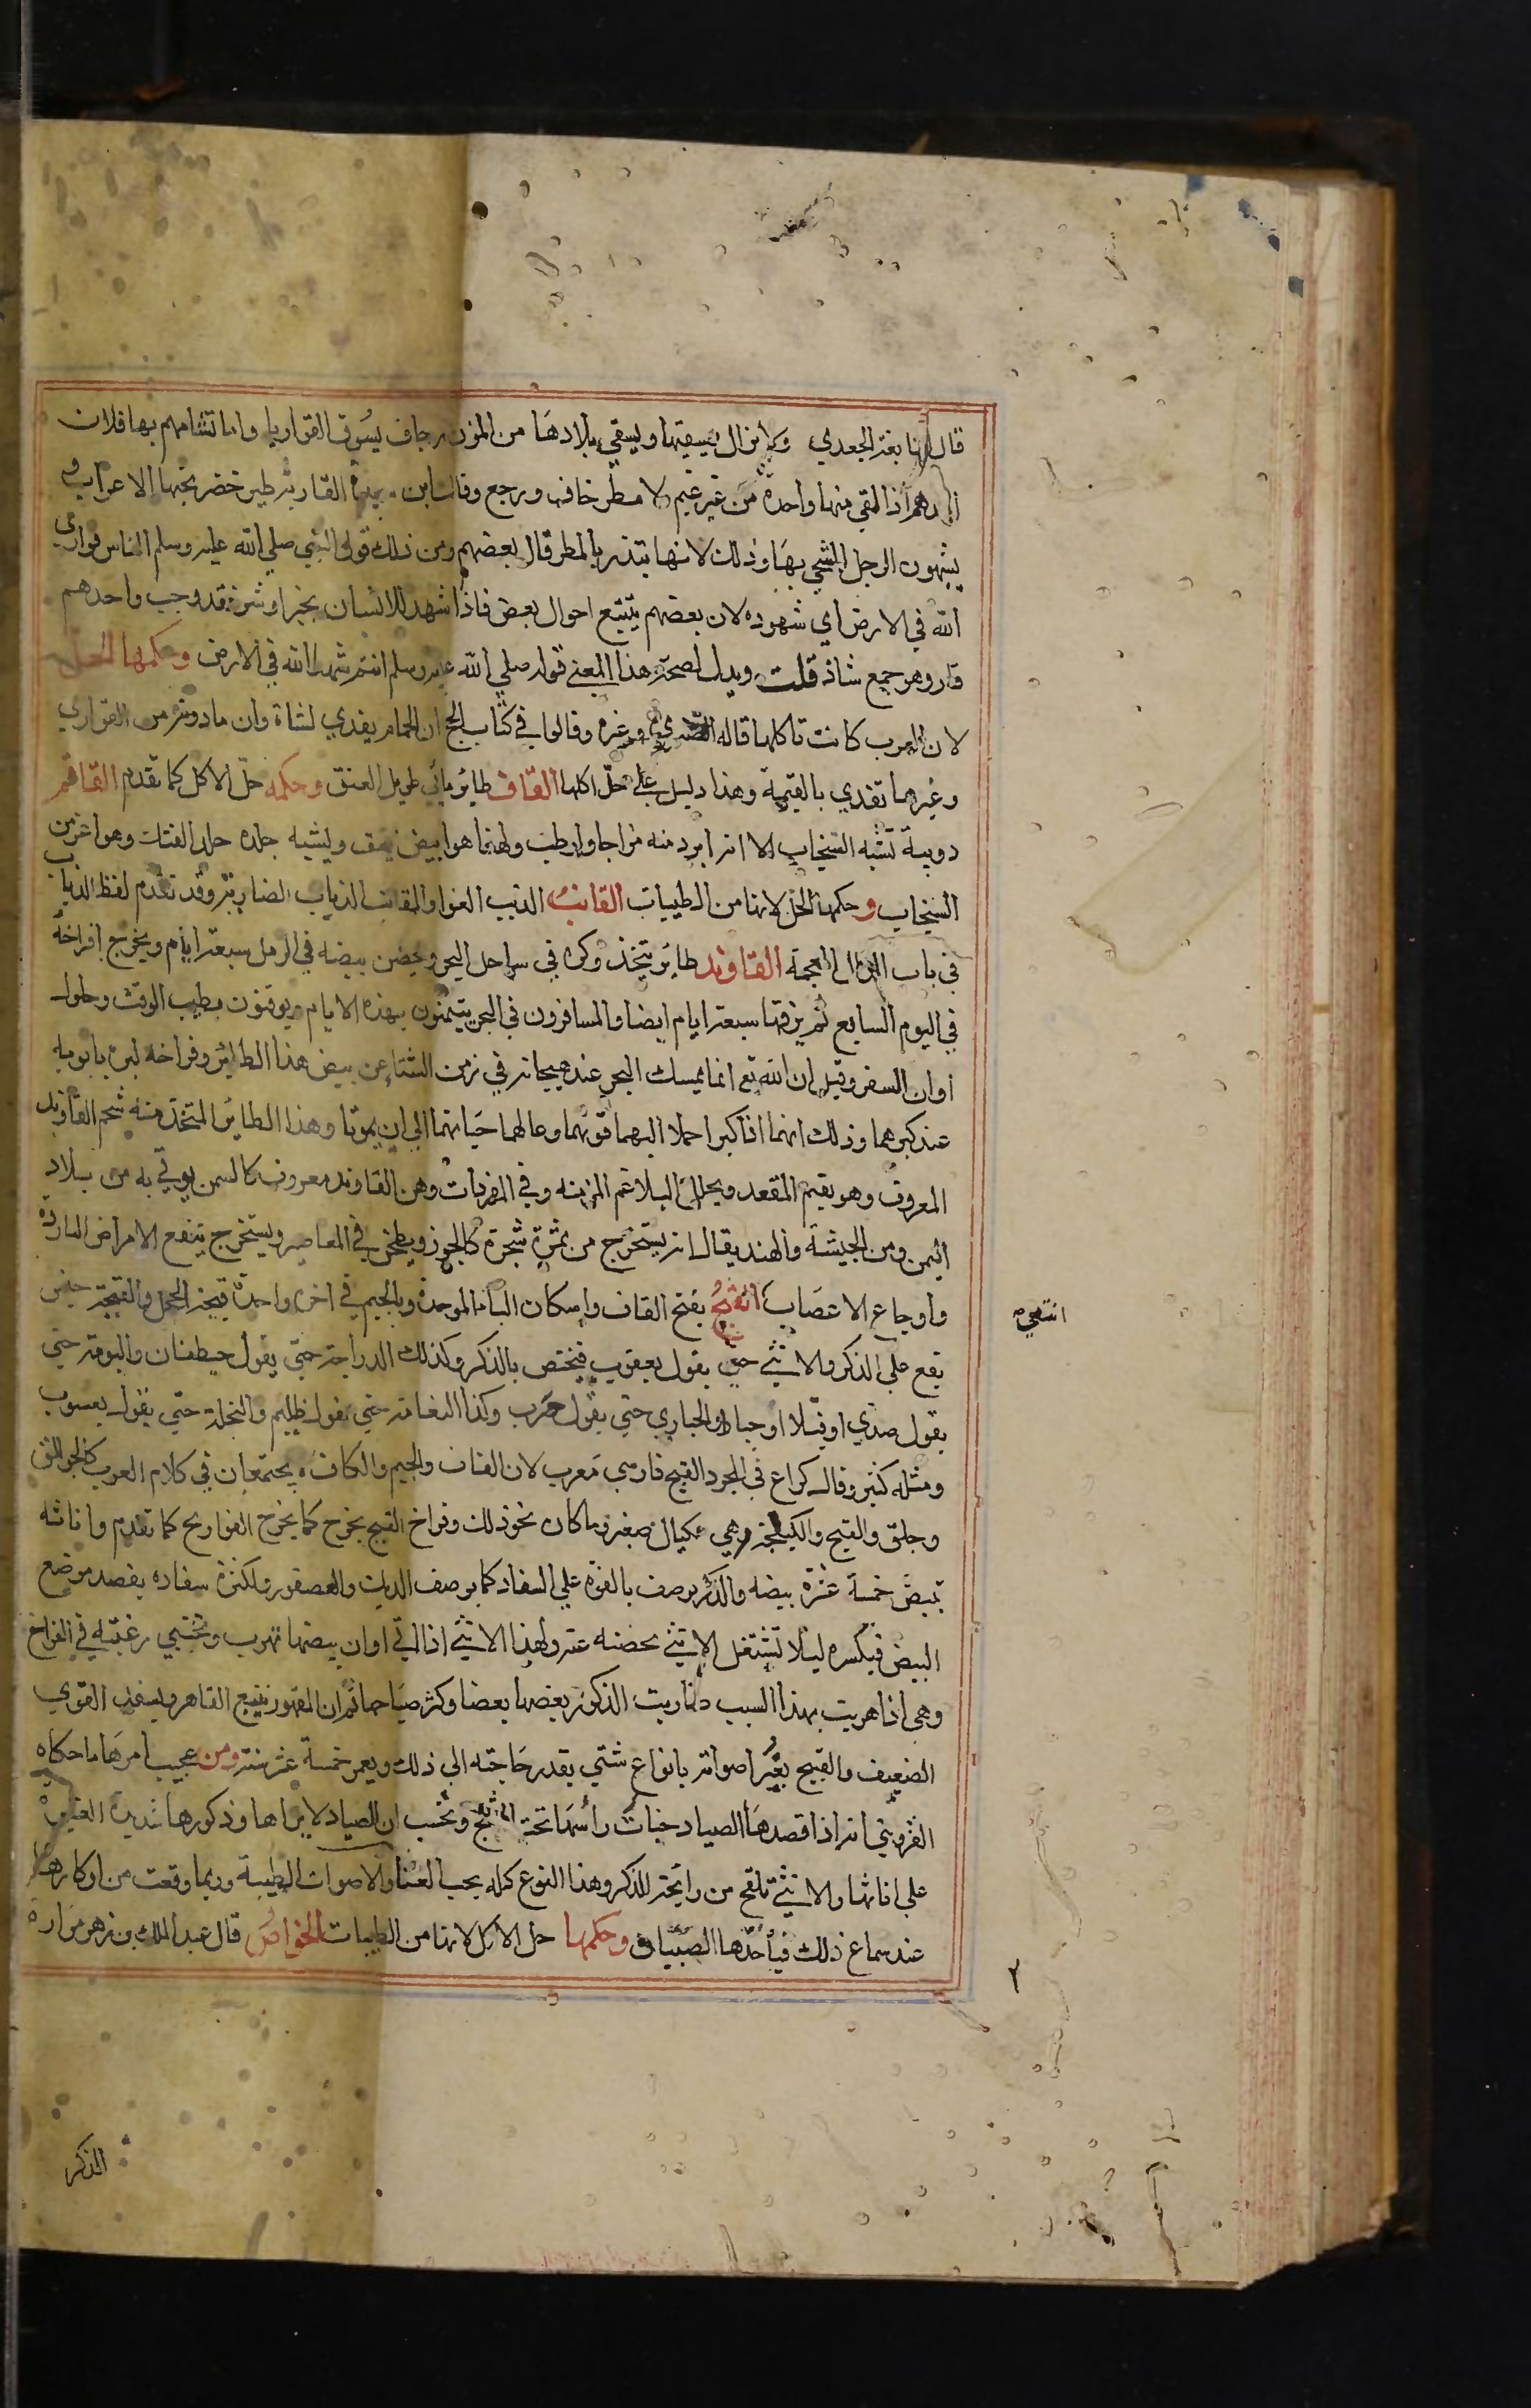 قال النابغة الجعدي ولا زال يسقيها ويسقي بلادها من المزن رجاف يسوق القواريا واما تشامهم بها فلان
احدهم اذا لقي منها واحدة من غير غيم ولا مطر خاف ورجع وقال ابن القارية طير خضر تحبها الاعراب و
يشبهون الرجل السخي بها وذلك لانها تنذر بالمطر قال بعضهم ومن ذلك قول النبي صلي الله عليه وسلم الناس قواري
الله في الارض اي شهوده لان بعضهم يتتبع احوال بعض فاذا شهد للانسان بخير او شر فقد وجب واحدهم
قار وهو جمع شاذ قلت ويدل لصحة هذا المعني قوله صلي الله عليه وسلم انتم شهداء الله في الارض وحكمها الحل
لان العرب كانت تاكلها قاله وغيره وقالوا في كتاب الحج ان الحمام يفدي لشاة وان ما دونه من القواري
وغيرهما تفدي بالقيمة وهذا دليل علي حل اكلها القاق طائر مائي طويل العنق وحكمه حل الاكل كما تقدم القاقم
دويبة تشبه السنجاب الا انه ابرد منه مزاجا وارطب ولهذا هو ابيض يقق ويشبه جلده جلد الفنك وهو اعز من
السنجاب وحكمها الحل لانها من الطيبات القانب الذيب العوا والمقانب الذياب الضارية وقد تقدم لفظ الذياب
في باب الذال المعجمة القاوند طائر يتخذ وكره في سواحل البحر ويحضن بيضه في الرمل سبعة ايام ويخرج افراخه
في اليوم السابع ثم يزقها سبعة ايام ايضا والمسافرون في البحر يتيمنون بهذه الايام ويوقنون بطيب الوقت وحلول
اوان السفر وقيل ان الله تع انما يمسك البحر عند هيجانه في زمن الشتاء عن بيض هذا الطائر وفراخه لبره بابويه
عند كبرهما وذلك انهما اذا كبرا حملا اليهما قوتهما وعالهما حياتهما الي ان يموتا وهذا الطائر المتخذ منه شحم القاوند
المعروف وهو يقيم المقعد ويحلل البلاغم المزمنة وفي المفردات دهن القاوند معروف كالسمن يوتي به من بلاد
اليمن ومن الحبشة والهند يقال انه يستخرج من ثمرة شجرة كالجوز ويطحن في المعاصر ويستخرج ينفع الامراض الباردة
واوجاع الاعصاب القبج بفتح القاف واسكان الباء الموحدة وبالجيم في اخره واحدة قبجة الحجل والقبجة جنس
انتهي
يقع علي الذكر والانثي حتي يقول يعقوب فيختص بالذكر وكذلك الدراجة حتي يقول حيطقان والبومة حتي
يقول صدي او فيلا او جباد والحباري حتي يقول خرب وكذا النعامة حتي يقول ظليم والنحلة حتي يقول يعسوب
ومثله كثير وقال كراع في المجرد القبج فارسي معرب لان القاف والجيم والكاف يجتمعان في كلام العرب كالجوالق
وجلق والقبج والكيلجة وهي مكيال صغير وما كان نحو ذلك وفراخ القبج يخرج كما يخرج الفراريج كما تقدم واناثه
تبيض خمسة عشرة بيضه والذكر يوصف بالقوة علي السفاد كما يوصف الديك والعصفور ولكثرة سفاده يقصد موضع
البيض فيكسره ليلا تشتغل الانثي بحضنه عنه ولهذا الانثي اذا اتي اوان بيضها تهرب وتختبي رغبة في الفراخ
وهي اذا هربت بهذا السبب ضاربت الذكور بعضها بعضا وكثر صياحها ثم ان المقهور يتبع القاهر ويسفد القوي
الضعيف والقبج يغير اصواته بانواع شتي بقدر حاجته الي ذلك ويعمر خمسة عشر سنة ومن عجيب امرها ما حكاه
القزويني انه اذا قصدها الصياد خبات راسها تحت الثلج وتحسب ان الصياد لا يراها وذكورها شديدة الغيرة
علي اناثها والانثي تلقح من رايحة الذكر وهذا النوع كله يحب الغناء والاصوات الطيبة وربما وقعت من اوكارها
عند سماع ذلك فياخذها الصياد وحكمها حل الاكل لانها من الطيبات الخواص قال عبد الملك بن زهر مرارة
٢
الذكر